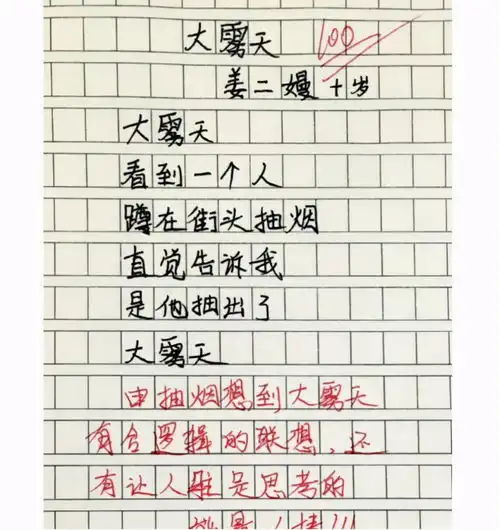 大雾天 100
姜二嫚 十岁
大雾天
看到一个人
蹲在街头抽烟
直觉告诉我
是他抽出了
大雾天
由抽烟想到大雾天
有合逻辑的联想,还
有让人驻足思考的